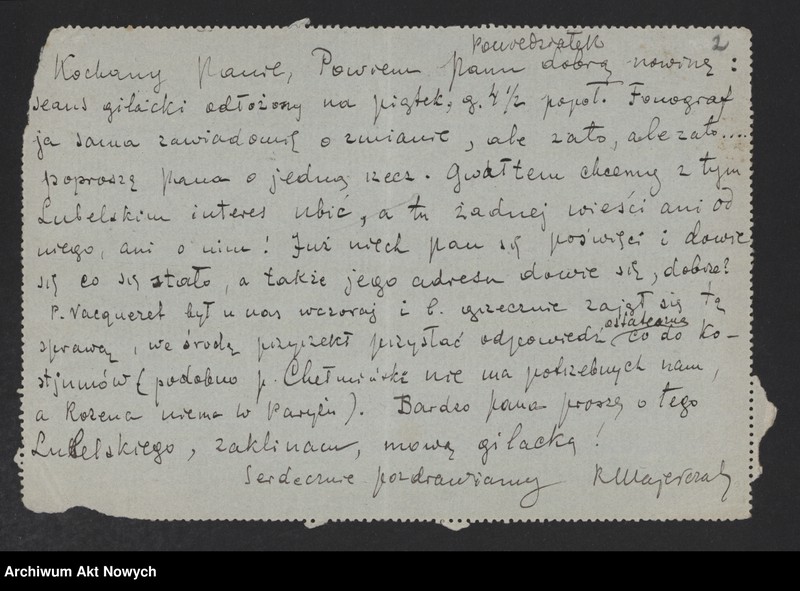 Poniedziałek 2
Kochany Panie, Powiem panu dobrą nowinę :
seans gilacki odłożony na piątek, g. 4 1/2 popoł. Fonograf
ja sama zawiadomię o zmianie, ale zato, ale zato....
poproszę pana o jedną rzecz. Gwałtem chcemy z tym
Lubelskim interes ubić, a tu żadnej wieści ani od
niego, ani o nim! Już niech pan się poświęci i dowie
się co się stało, a także jego adresu dowie się, dobrze?
P. Vacqueret był u nas wczoraj i b. grzecznie zajął się tą
sprawą, we środę przyrzekł przysłać odpowiedź ostateczną co do ko-
stjumów (podobno p. Chełmiński nie ma potrzebnych nam,
a Rozena niema w Paryżu). Bardzo pana proszę o tego
Lubelskiego, zaklinam, mową gilacką!
Serdecznie pozdrawiamy
Archiwum Akt Nowych